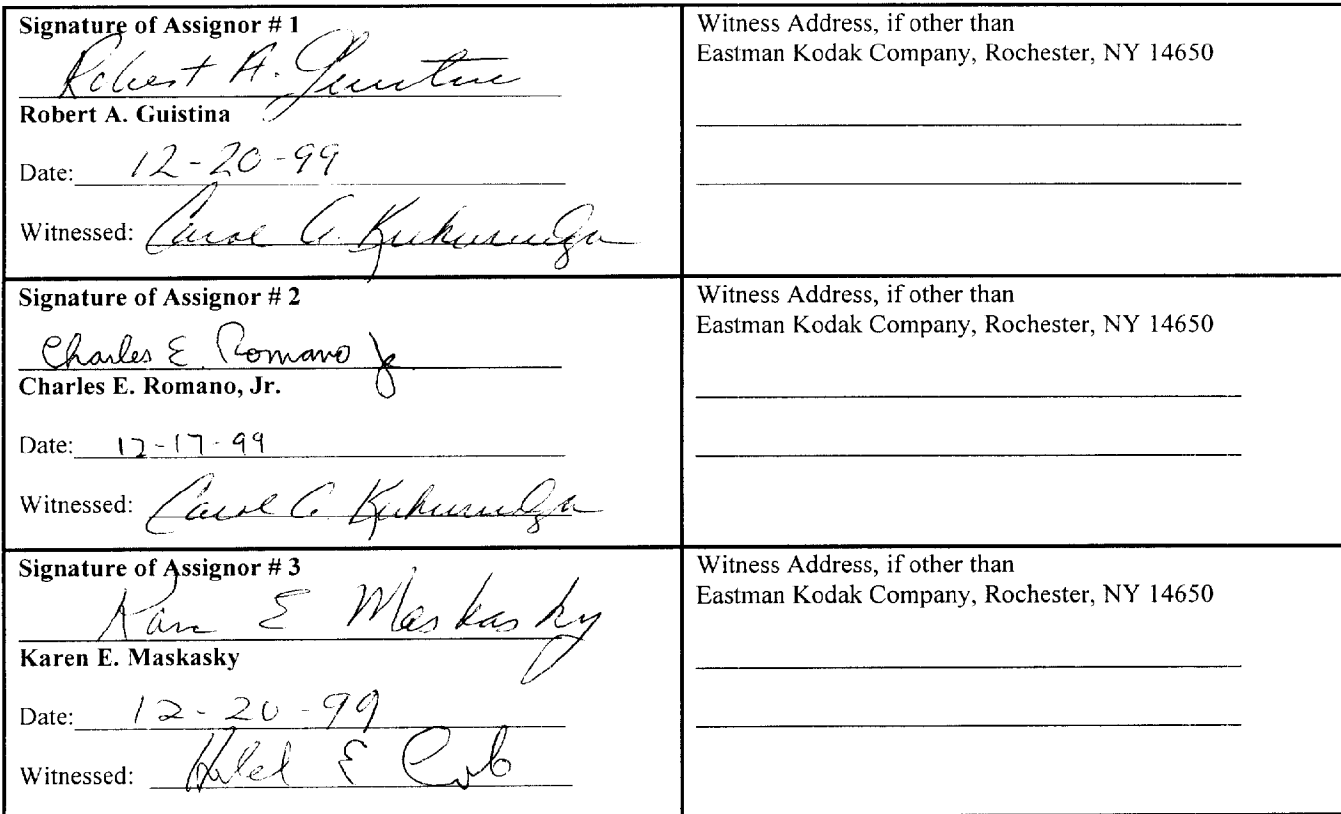 Signature of Assignor # 1
Robert A. Guistina
Robert A. Guistina
Date: 12-20-99
Witnessed: Carol A. Kukurudza
Witness Address, if other than
Eastman Kodak Company, Rochester, NY 14650
Signature of Assignor # 2
Charles E. Romano Jr
Charles E. Romano, Jr.
Date: 12-17-99
Witnessed: Carol A. Kukurudza
Witness Address, if other than
Eastman Kodak Company, Rochester, NY 14650
Signature of Assignor # 3
Karen E Maskasky
Karen E. Maskasky
Date: 12-20-99
Witnessed: E
Witness Address, if other than
Eastman Kodak Company, Rochester, NY 14650